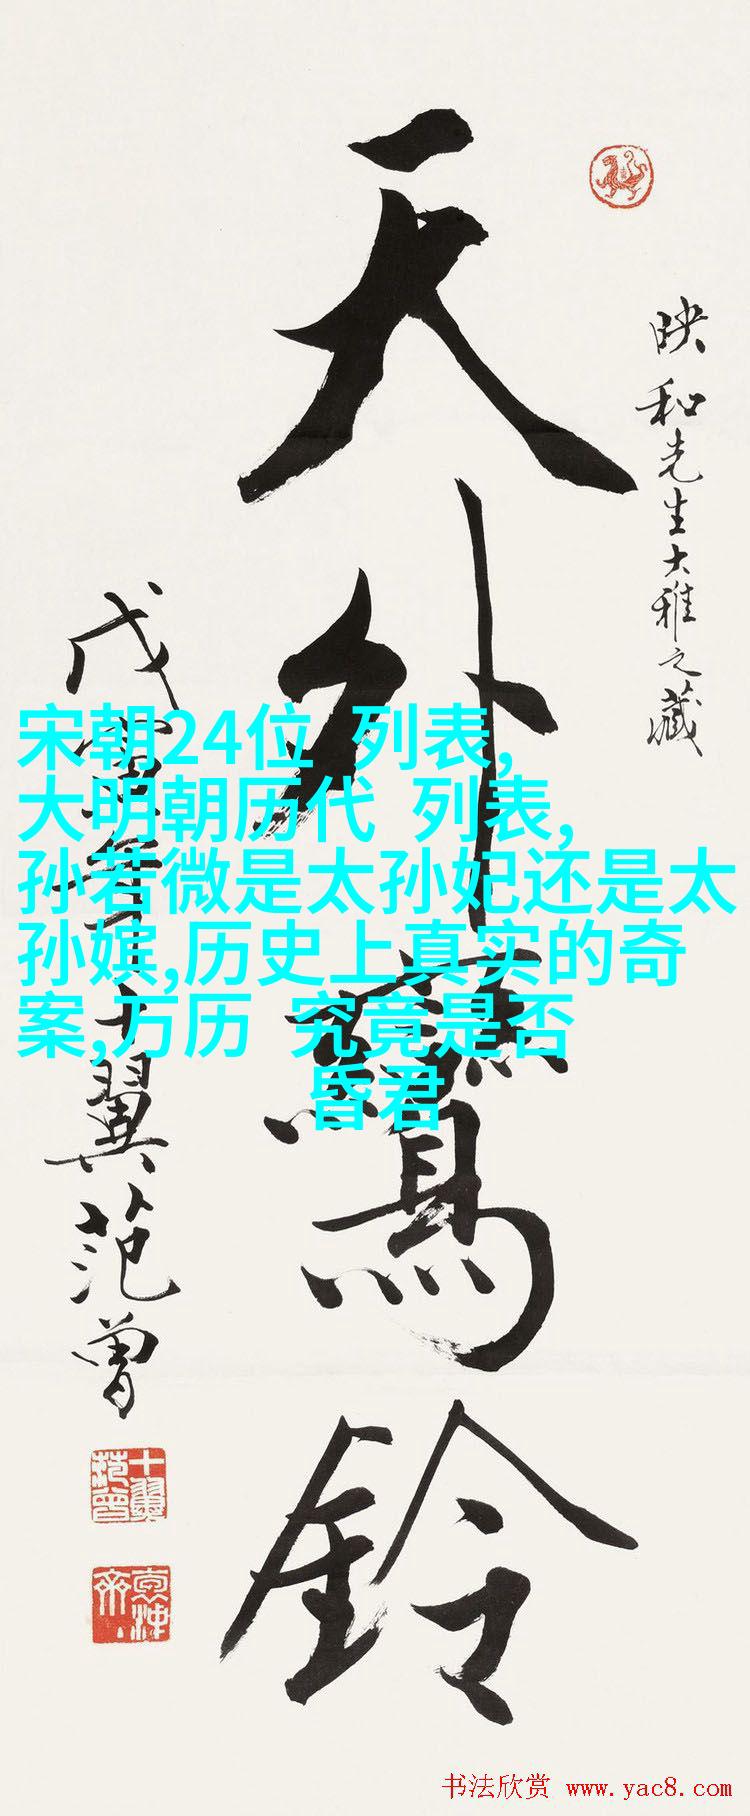 映和先生大雅之藏
天外鸞鈴
戊寅年十翼范曾
十翼范曾
宋朝24位 列表,
大明朝历代 列表,
孙若微是太孙妃还是太
孙嫔,历史上真实的奇
案,万历 究竟是否
昏君
书法欣赏 www.yac8.com